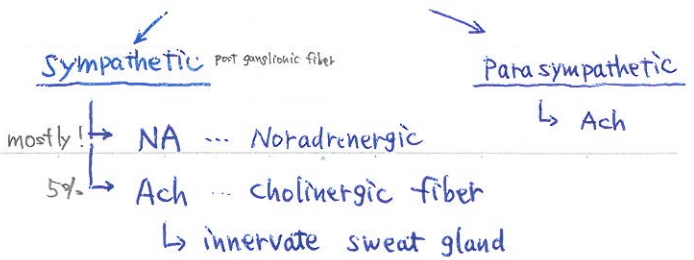 Sympathetic post ganglionic fiber
Parasympathetic
↳ Ach
mostly! → NA … Noradrenergic
5% → Ach … cholinergic fiber
↳ innervate sweat gland